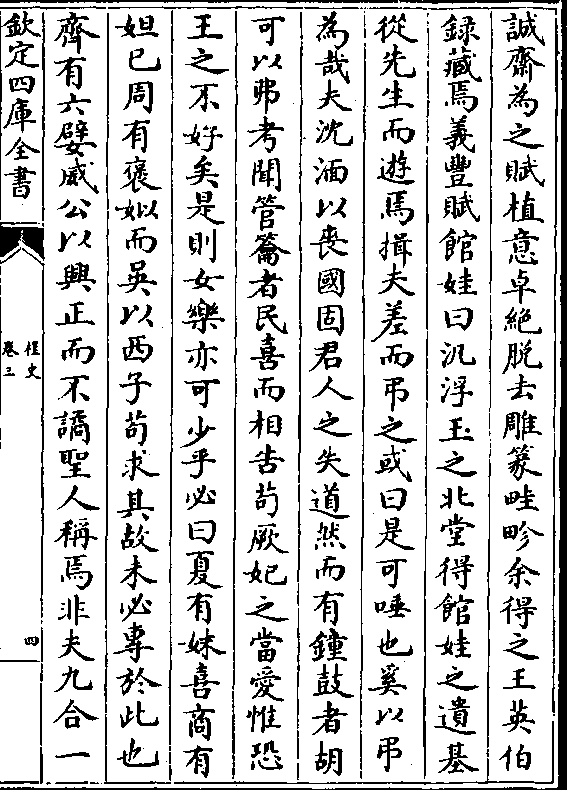 誠齋為之賦植意卓絶脱去雕篆畦畛余得之王英伯
録藏焉義豐賦館娃曰汎浮玉之北堂得館娃之遺基
從先生而遊焉揖夫差而弔之或曰是可唾也奚以弔
為哉夫沈湎以喪國固君人之失道然而有鐘鼓者胡
可以弗考聞管籥者民喜而相告茍厥妃之當愛惟恐
王之不好矣是則女樂亦可少乎必曰夏有妹喜商有
妲已周有褒姒而吳以西子茍求其故未必専於此也
齊有六嬖威公以興正而不譎聖人稱焉非夫九合一
欽定四庫全書
桯史
卷三
四